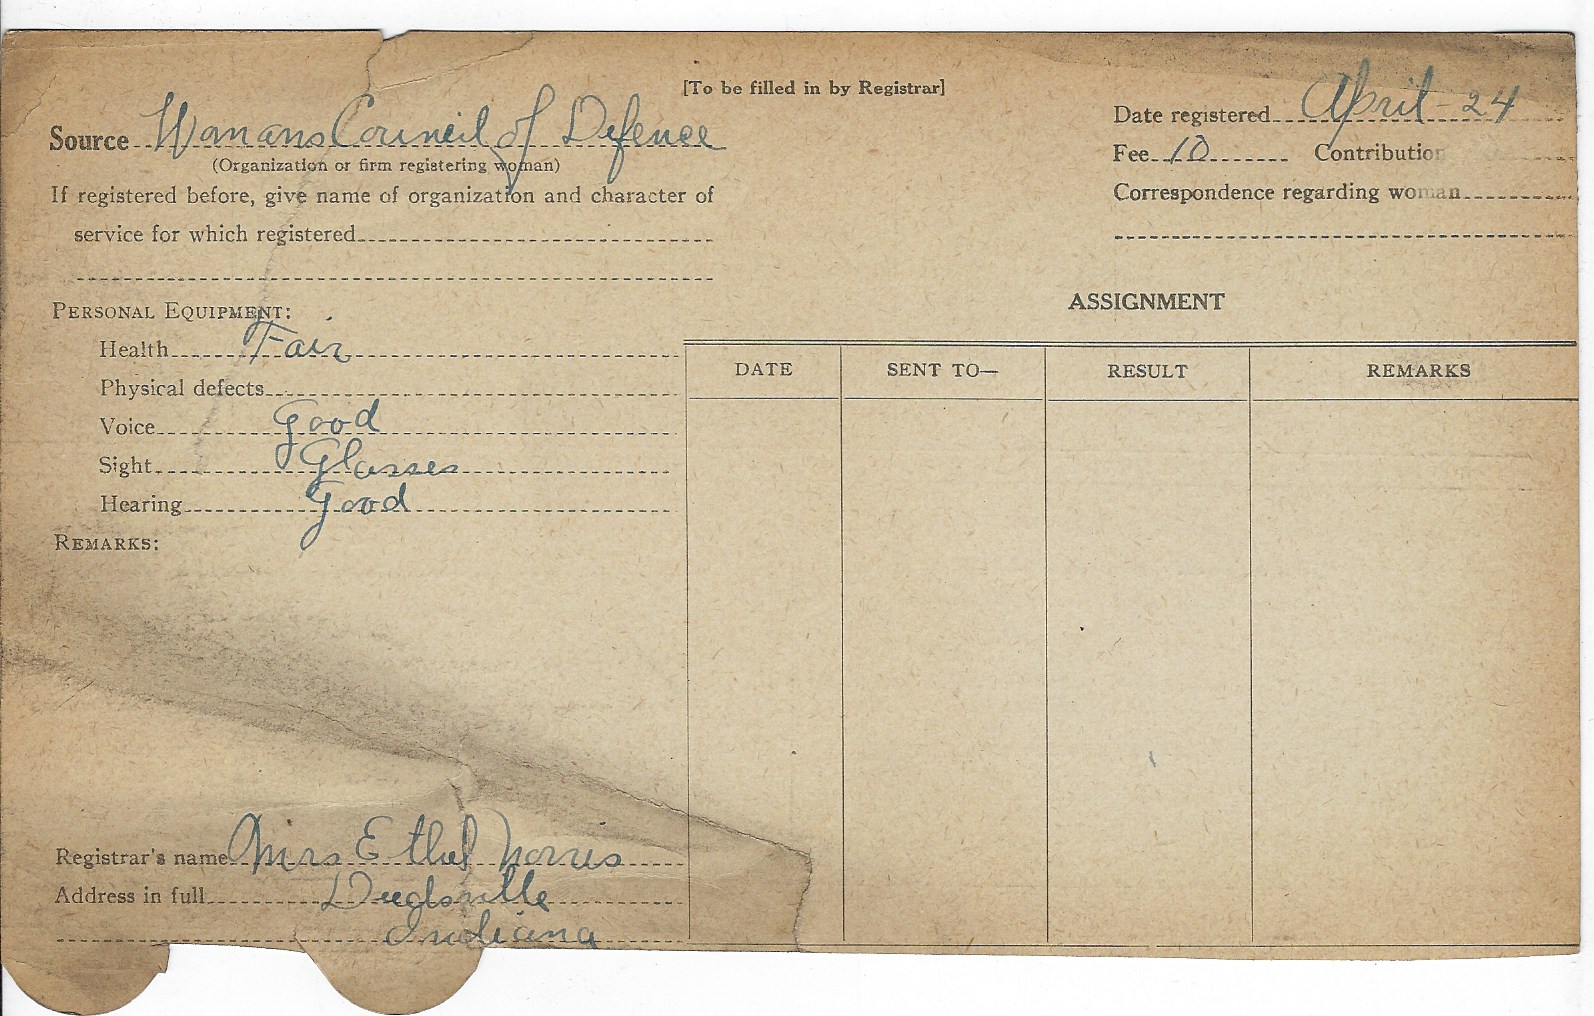 [To be filled in by Registrar]
Source Womans Council of Defence
(Organization or firm registering woman)
If registered before, give name of organization and character of
service for which registered
Date registered April - 24
Fee 10 Contribution
Correspondence regarding woman
PERSONAL EQUIPMENT:
Health Fair
Physical defects
Voice Good
Sight Glasses
Hearing Good
REMARKS:
ASSIGNMENT
DATE SENT TO— RESULT REMARKS
Registrar's name Mrs Ethel Norris
Address in full
Indiana